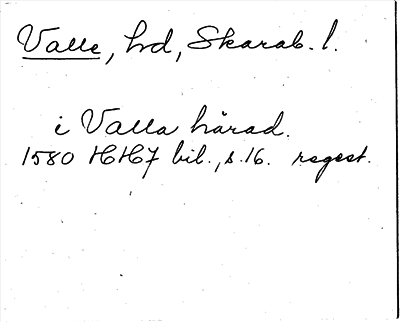 Valle, hd, Skarab. l.
i Valla härad.
1580 HH7 bil., s. 16. regest.